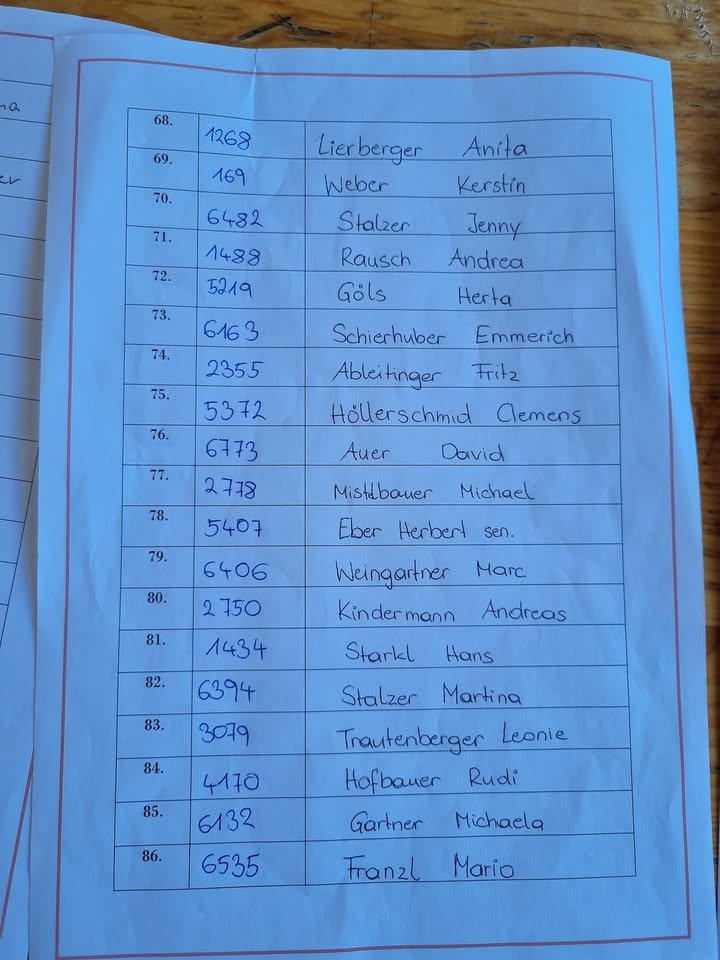 na
er
68. 1268 Lierberger Anita
69. 169 Weber Kerstin
70. 6482 Stalzer Jenny
71. 1488 Rausch Andrea
72. 5219 Göls Herta
73. 6163 Schierhuber Emmerich
74. 2355 Ableitinger Fritz
75. 5372 Höllerschmid Clemens
76. 6773 Auer David
77. 2778 Mistlbauer Michael
78. 5407 Eber Herbert sen.
79. 6406 Weingartner Marc
80. 2750 Kindermann Andreas
81. 1434 Starkl Hans
82. 6394 Stalzer Martina
83. 3079 Trautenberger Leonie
84. 4170 Hofbauer Rudi
85. 6132 Gartner Michaela
86. 6535 Franzl Mario